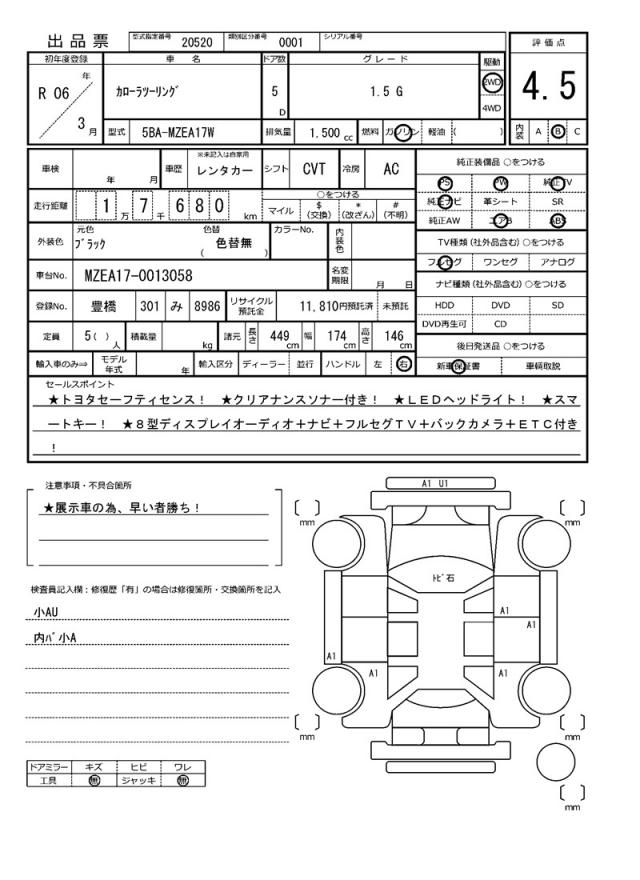 出品票 型式指定番号 20520 類別区分番号 0001 シリアル番号
評価点
4.5
内装 A B C
初年度登録 車名 ドア数 グレード 駆動
R 06 年 3 月
カローラツーリング 5 D 1.5 G 2WD 4WD
型式 5BA-MZEA17W 排気量 1.500 cc 燃料 ガソリン 軽油 ( )
車検 年 月 車歴 ※未記入は自家用 レンタカー シフト CVT 冷房 AC
走行距離 1 万 7 千 6 8 0 km
○をつける
マイル $ (交換) * (改ざん) # (不明)
外装色 元色 ブラック 色替 ( 色替無 ) カラーNo. 内装色
車台No. MZEA17-0013058 名変期限 月 日
登録No. 豊橋 301 み 8986 リサイクル預託金 11,810円預託済 未預託
定員 5( ) 人 積載量 kg 諸元 長さ 449 cm 幅 174 cm 高さ 146 cm
輸入車のみ⇒ モデル年式 年 輸入区分 ディーラー 並行 ハンドル 左 右
純正装備品 ○をつける
PS PW 純正TV
純正ナビ 革シート SR
純正AW エアB ABS
TV種類(社外品含む)○をつける
フルセグ ワンセグ アナログ
ナビ種類(社外品含む)○をつける
HDD DVD SD
DVD再生可 CD
後日発送品 ○をつける
新車保証書 車輌取説
セールスポイント
★トヨタセーフティセンス! ★クリアナンスソナー付き! ★LEDヘッドライト! ★スマ
ートキー! ★8型ディスプレイオーディオ+ナビ+フルセグTV+バックカメラ+ETC付き
!
注意事項・不具合箇所
★展示車の為、早い者勝ち!
検査員記入欄:修復歴「有」の場合は修復箇所・交換箇所を記入
小AU
内バ小A
ドアミラー キズ ヒビ ワレ
工具 無 ジャッキ 無
A1 U1
[ ] mm
[ ] mm
トビ石
A1
A1
A1
A1
A1
[ ] mm
[ ] mm
[ ] mm